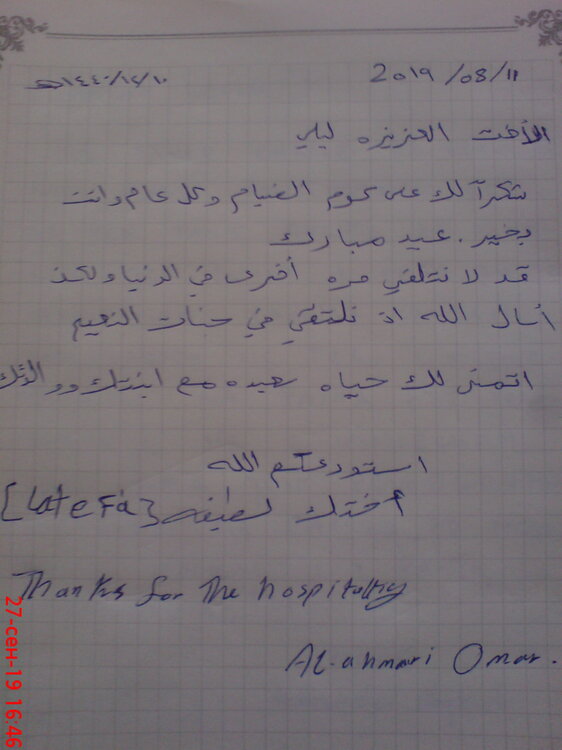 2019/08/11
١٤٤٠/١٢/١٠هـ
الأخت العزيزه ليلي
شكراً لك على كرم الضيام وكل عام وانت
بخير . عيد مبارك
قد لا نتلقي مره أخرى في الدنيا ولكن
أسال الله ان نلتقي في جنات النعيم
اتمنى لك حياه سعيده مع ابنتك ووالدتك
استودعكم الله
أختك لطيفه {Latefa}
Thanks for The hospitality
AL-ahmari Omar.
27-сен-19 16:46